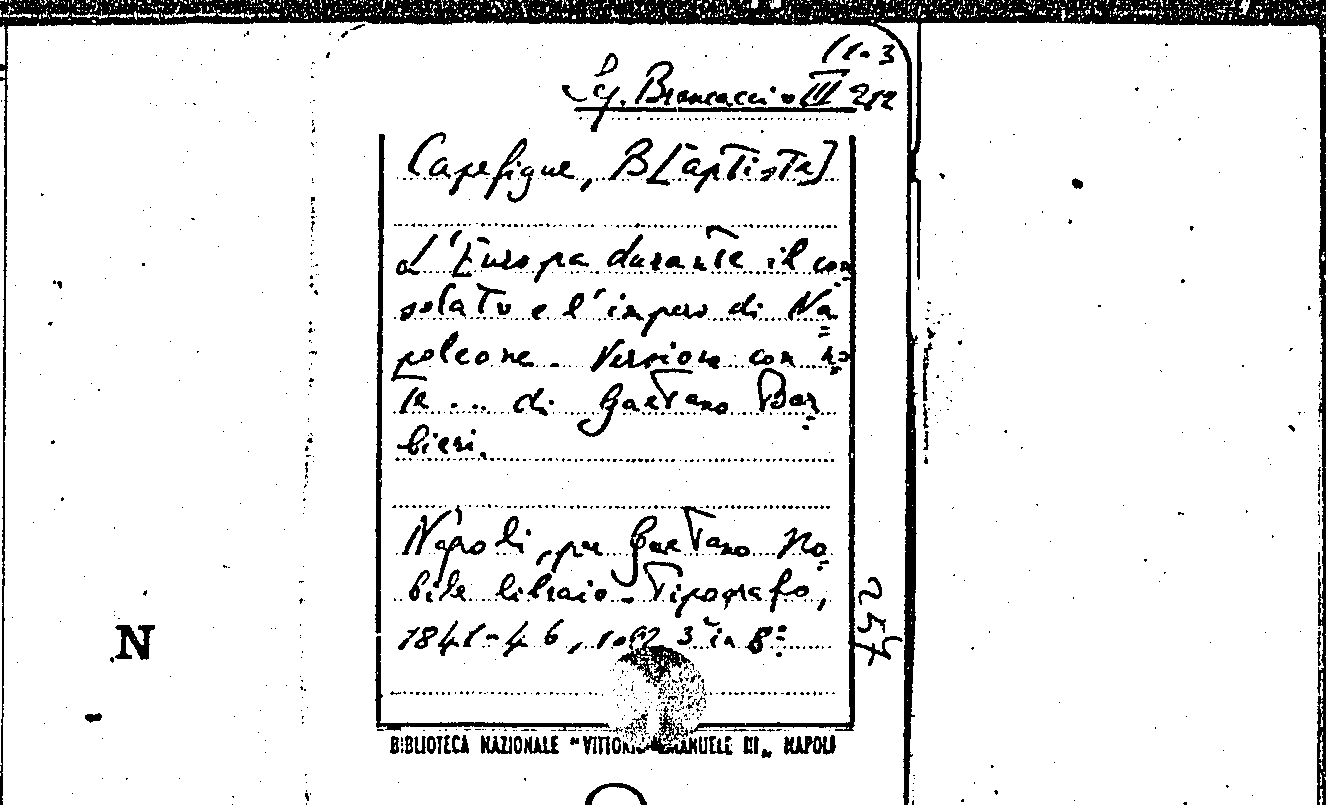 (1-3
Sg. Brancacciana III 212
Capefigue, B[aptista]
L'Europa durante il con=
solato e l'impero di Na=
poleone. Versione con no=
te ... di Gaetano Bar=
bieri.
Napoli, per Gaetano No=
bile libraio-Tipografo,
1841-46, voll 3 in 8°
257
N
BIBLIOTECA NAZIONALE "VITTORIO EMANUELE III" NAPOLI